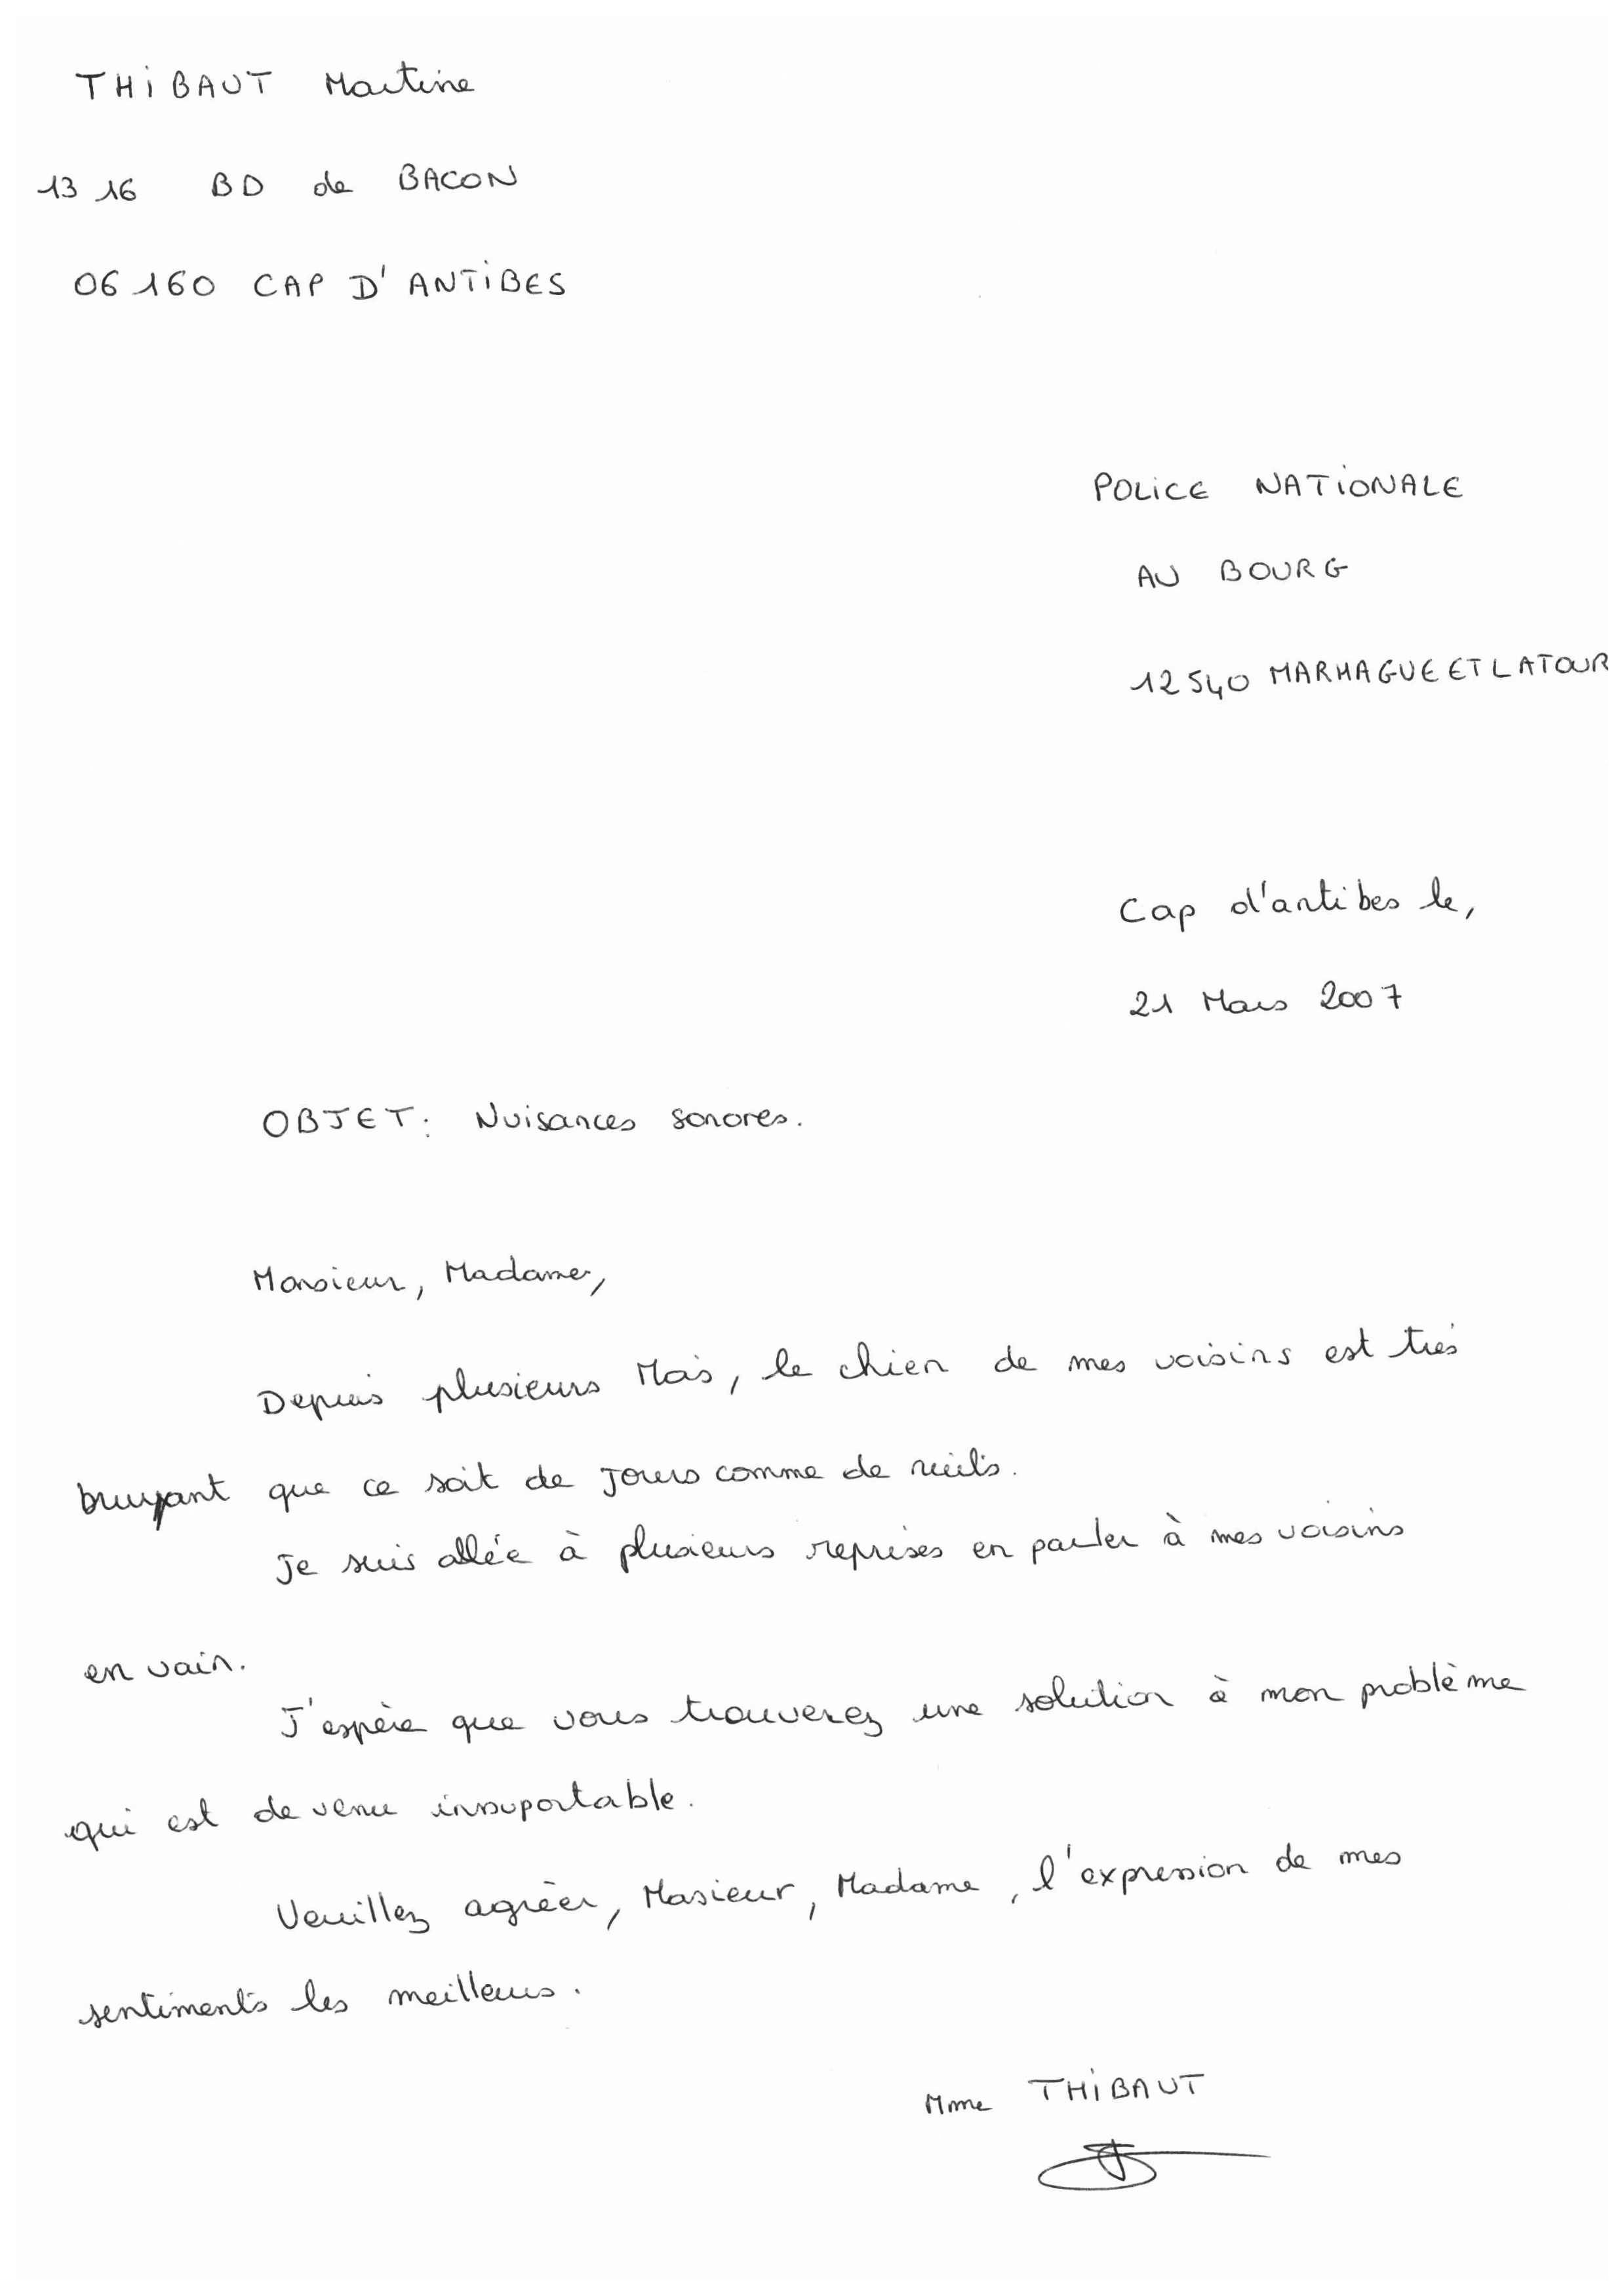 THIBAUT Martine
1316 BD de BACON
06160 CAP D'ANTIBES
POLICE NATIONALE
AU BOURG
12540 MARHAGUE ET LATOUR
Cap d'antibes le,
21 Mars 2007
OBJET: Nuisances sonores.
Monsieur, Madame,
Depuis plusieurs Mois, le chien de mes voisins est très
bruyant que ce soit de jours comme de nuits.
Je suis allée à plusieurs reprises en parler à mes voisins
en vain.
J'espère que vous trouverez une solution à mon problème
qui est devenu insuportable.
Veuillez agréer, Masieur, Madame, l'expression de mes
sentiments les meilleurs.
Mme THIBAUT